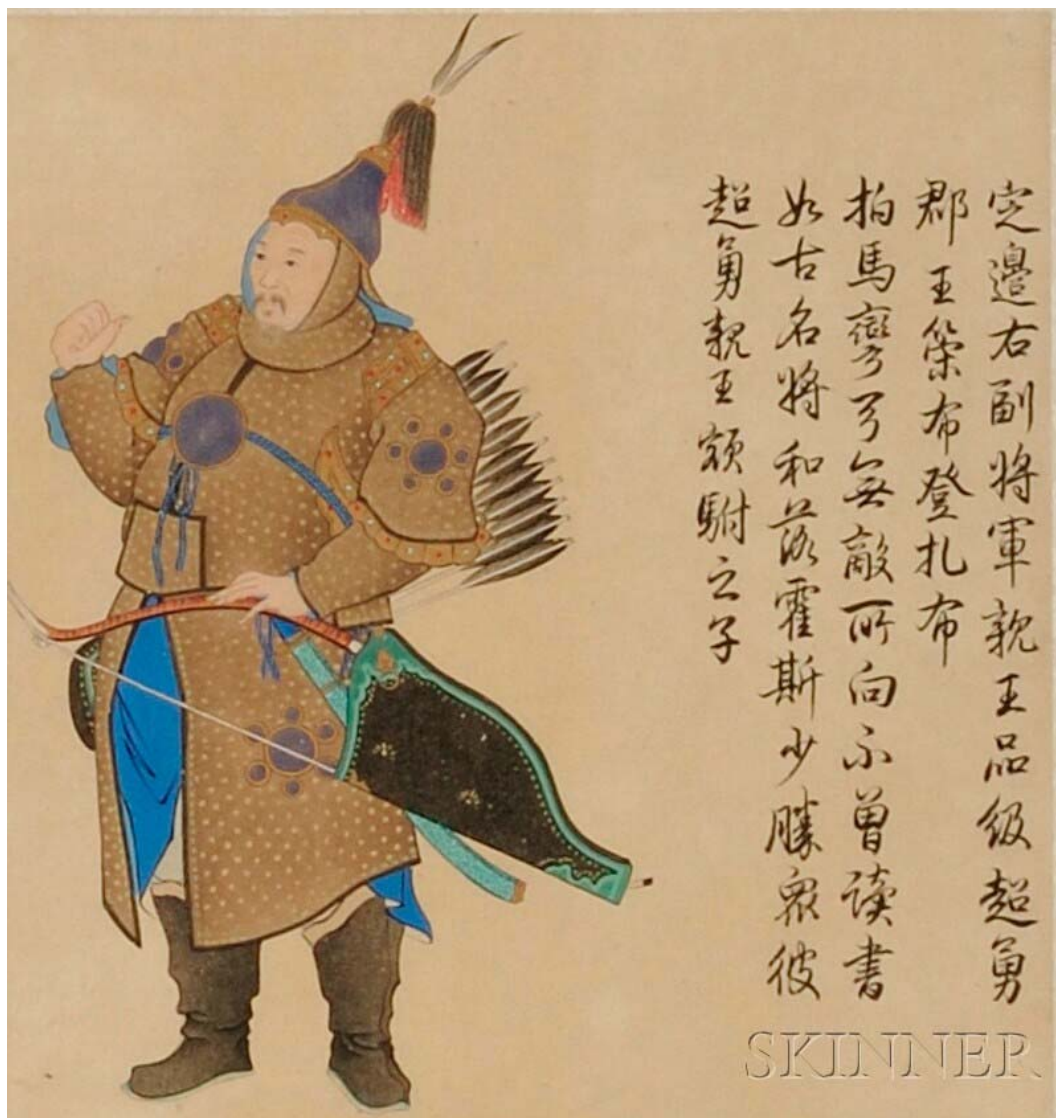 定邉右副將軍親王品級超勇
郡王策布登扎布
拍馬彎弓無敵所向不曾读書
如古名將和落霍斯少勝衆彼
超勇親王額駙之子
SKINNER